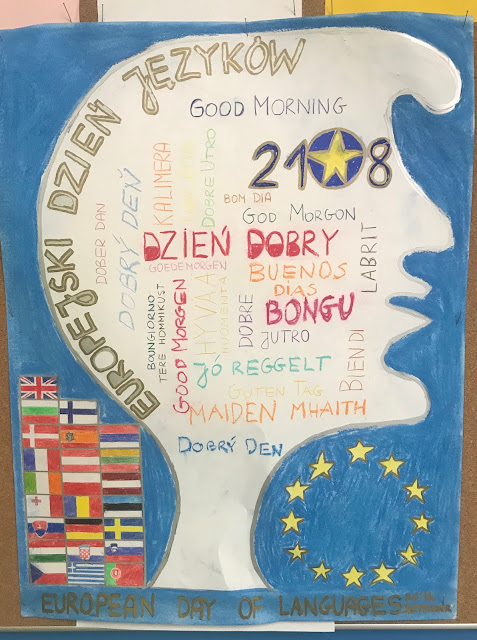 EUROPEJSKI DZIEŃ JĘZYKÓW
GOOD MORNING
2108
KALIMERA
DOBRE UTRO
BOM DIA
GOD MORGON
DOBER DAN
DOBRÝ DEŇ
DZIEŃ DOBRY
LABRIT
GOEDEMORGEN
BUENOS
DIAS
BOUNGIORNO
TERE HOMMIKUST
GOOD MORGEN
HYVAA
HUOMENTA
DOBRE
JUTRO
BONGU
BIEN DI
JÓ REGGELT
GUTEN TAG
MAIDEN MHAITH
DOBRÝ DEN
EUROPEAN DAY OF LANGUAGES